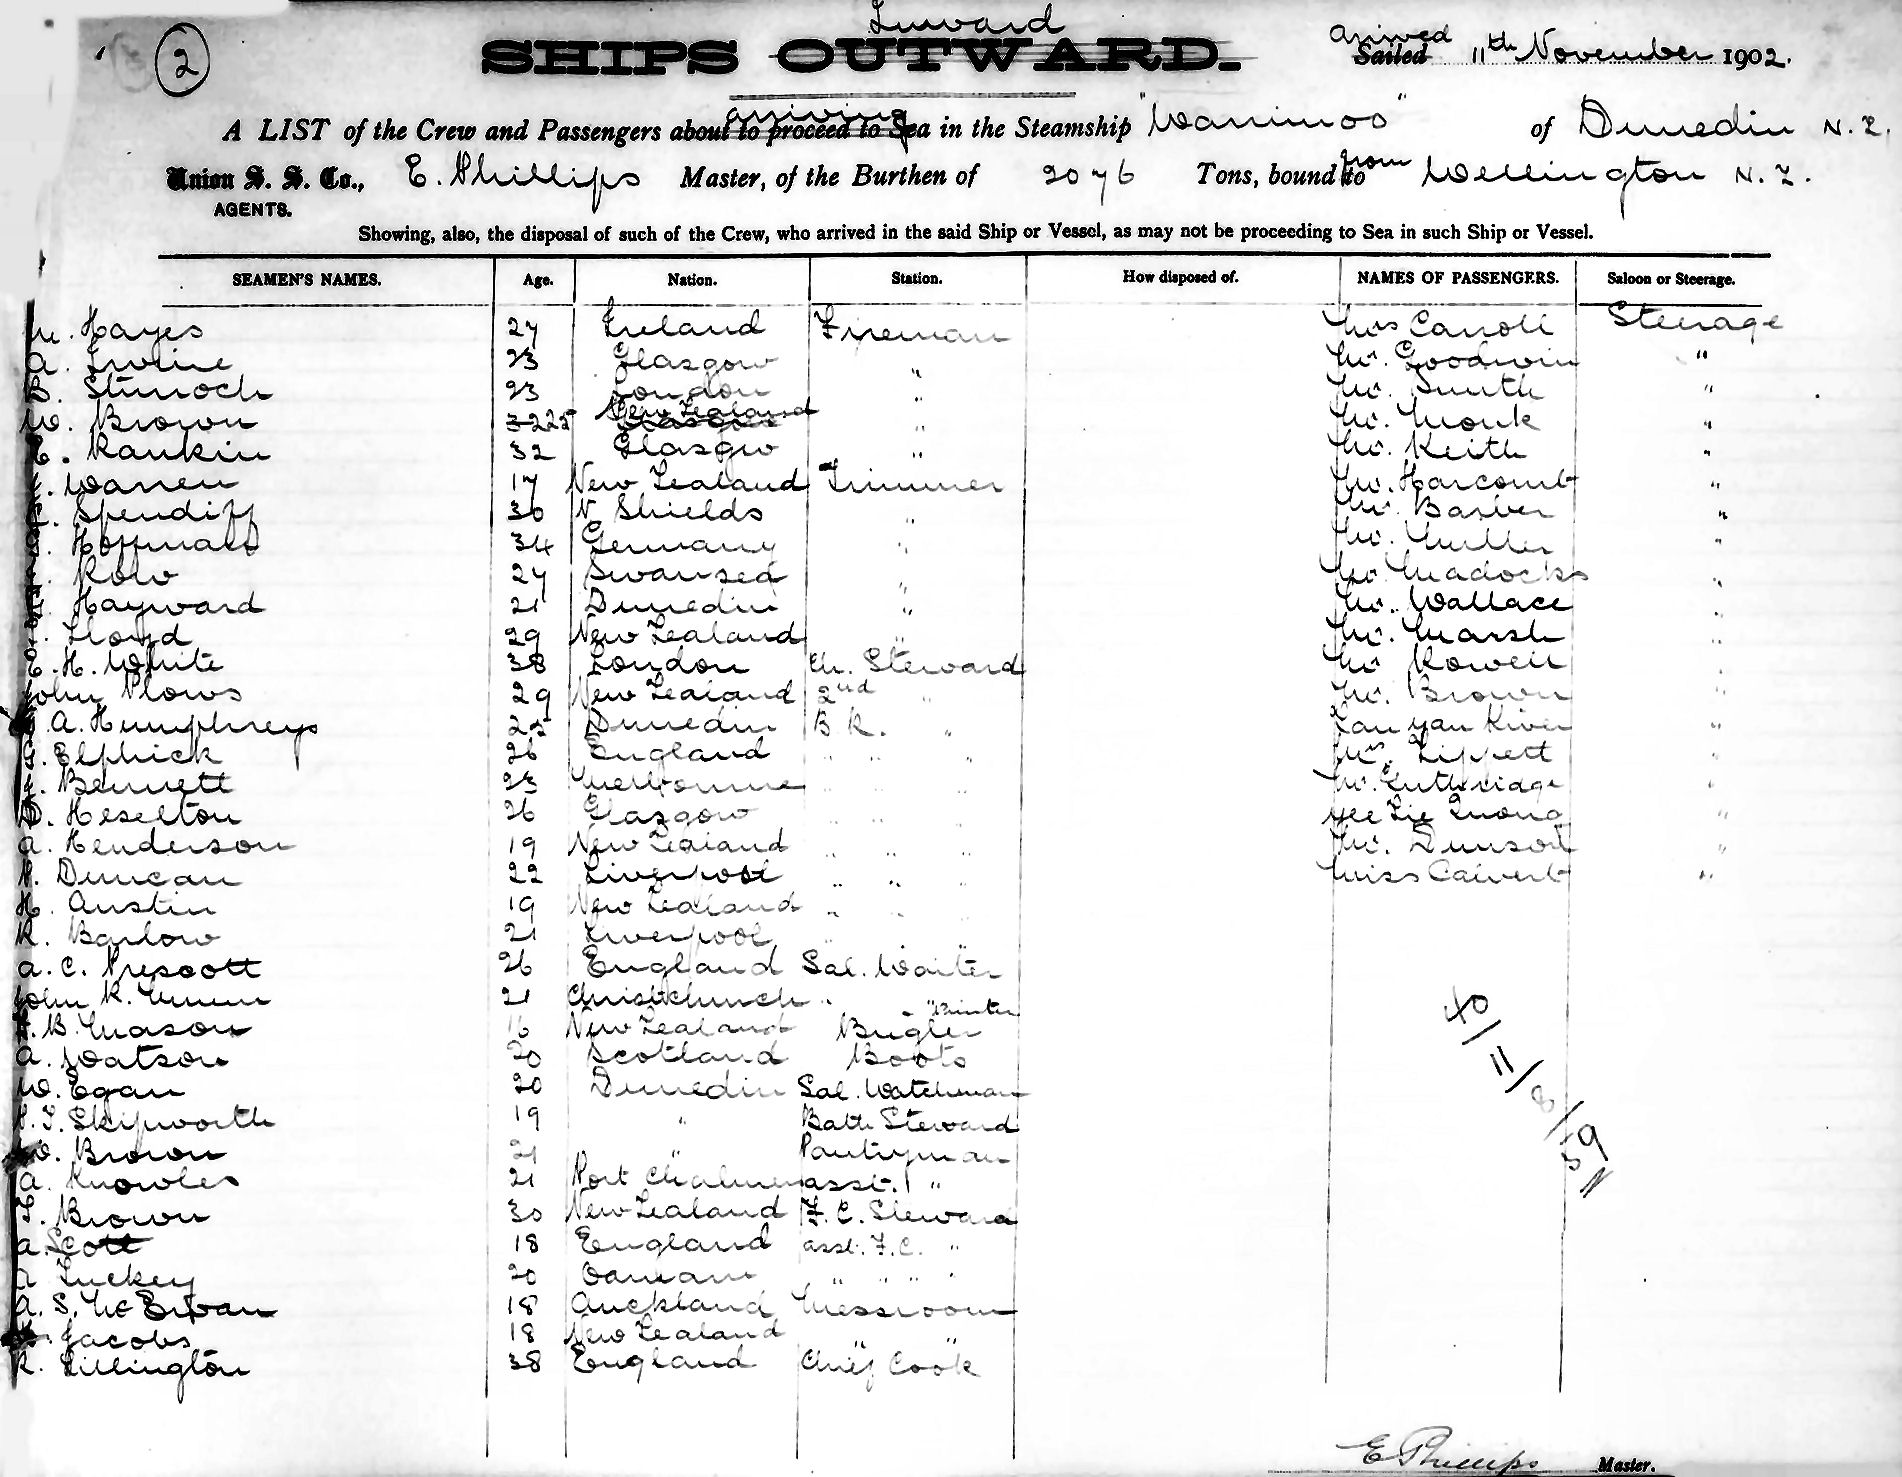 2
Inward
SHIPS OUTWARD.
arrived
Sailed 11th November 1902.
arriving
A LIST of the Crew and Passengers about to proceed to Sea in the Steamship "Warrimoo" of Dunedin N.Z.
from
Union S. S. Co., E. Phillips Master, of the Burthen of 2076 Tons, bound to Wellington N.Z.
AGENTS.
Showing, also, the disposal of such of the Crew, who arrived in the said Ship or Vessel, as may not be proceeding to Sea in such Ship or Vessel.
SEAMEN'S NAMES. Age. Nation. Station. How disposed of. NAMES OF PASSENGERS. Saloon or Steerage.
Hayes 27 Ireland Fireman Mrs Carroll Steerage
A. Irvine 23 Glasgow " Mr. Goodwin "
23 London " Mr. Smith "
W. Brown 32 25 New Zealand Glasgow " Mr. Monk "
Rankin 32 Glasgow " Mr. Keith "
Warren 17 New Zealand Trimmer Mr. Harcombt "
Spendiff 30 N Shields " Mr. Barber "
Hoffman 34 Germany " Mr. Muller "
Row 27 Swansea " Mr. Madocks "
Hayward 21 Dunedin " Mr. Wallace "
Lloyd 29 New Zealand " Mr. Marsh "
E. H. White 38 London Ch. Steward Mr Rowell "
John Plows 29 New Zealand 2nd " Mr. Brown "
A. Humphreys 25 Dunedin B R. " River "
G. Elphick 26 England " " " Mrs. Tippett "
Bennett 23 Melbourne " " " Mr. Guthridge "
D. Heselton 26 Glasgow " " " Yee Quong "
A. Henderson 19 New Zealand " " " Mr. "
P. Duncan 22 Liverpool " " " Miss Calvert "
H. Austin 19 New Zealand " " "
R. Barlow 21 Liverpool " "
A. C. Prescott 26 England Sal. Waiter
John R. 21 Christchurch " "
B. Mason 16 New Zealand Bugler " Printer
A. Watson 20 Scotland Boots
W. Egan 20 Dunedin Sal. Watchman
T. Skipworth 19 " Bath Steward
W. Brown 21 " Pantryman
A. Knowles 21 Port Chalmers asst. "
T. Brown 30 New Zealand F. C. Steward
A. Scott 18 England asst. F.C. "
Luckey 20 Oamaru " " " "
A. S. McEwan 18 Auckland Messroom "
Jacobs 18 New Zealand " "
R. Lillington 38 England Chief Cook
40/11/8/59
E Phillips Master.